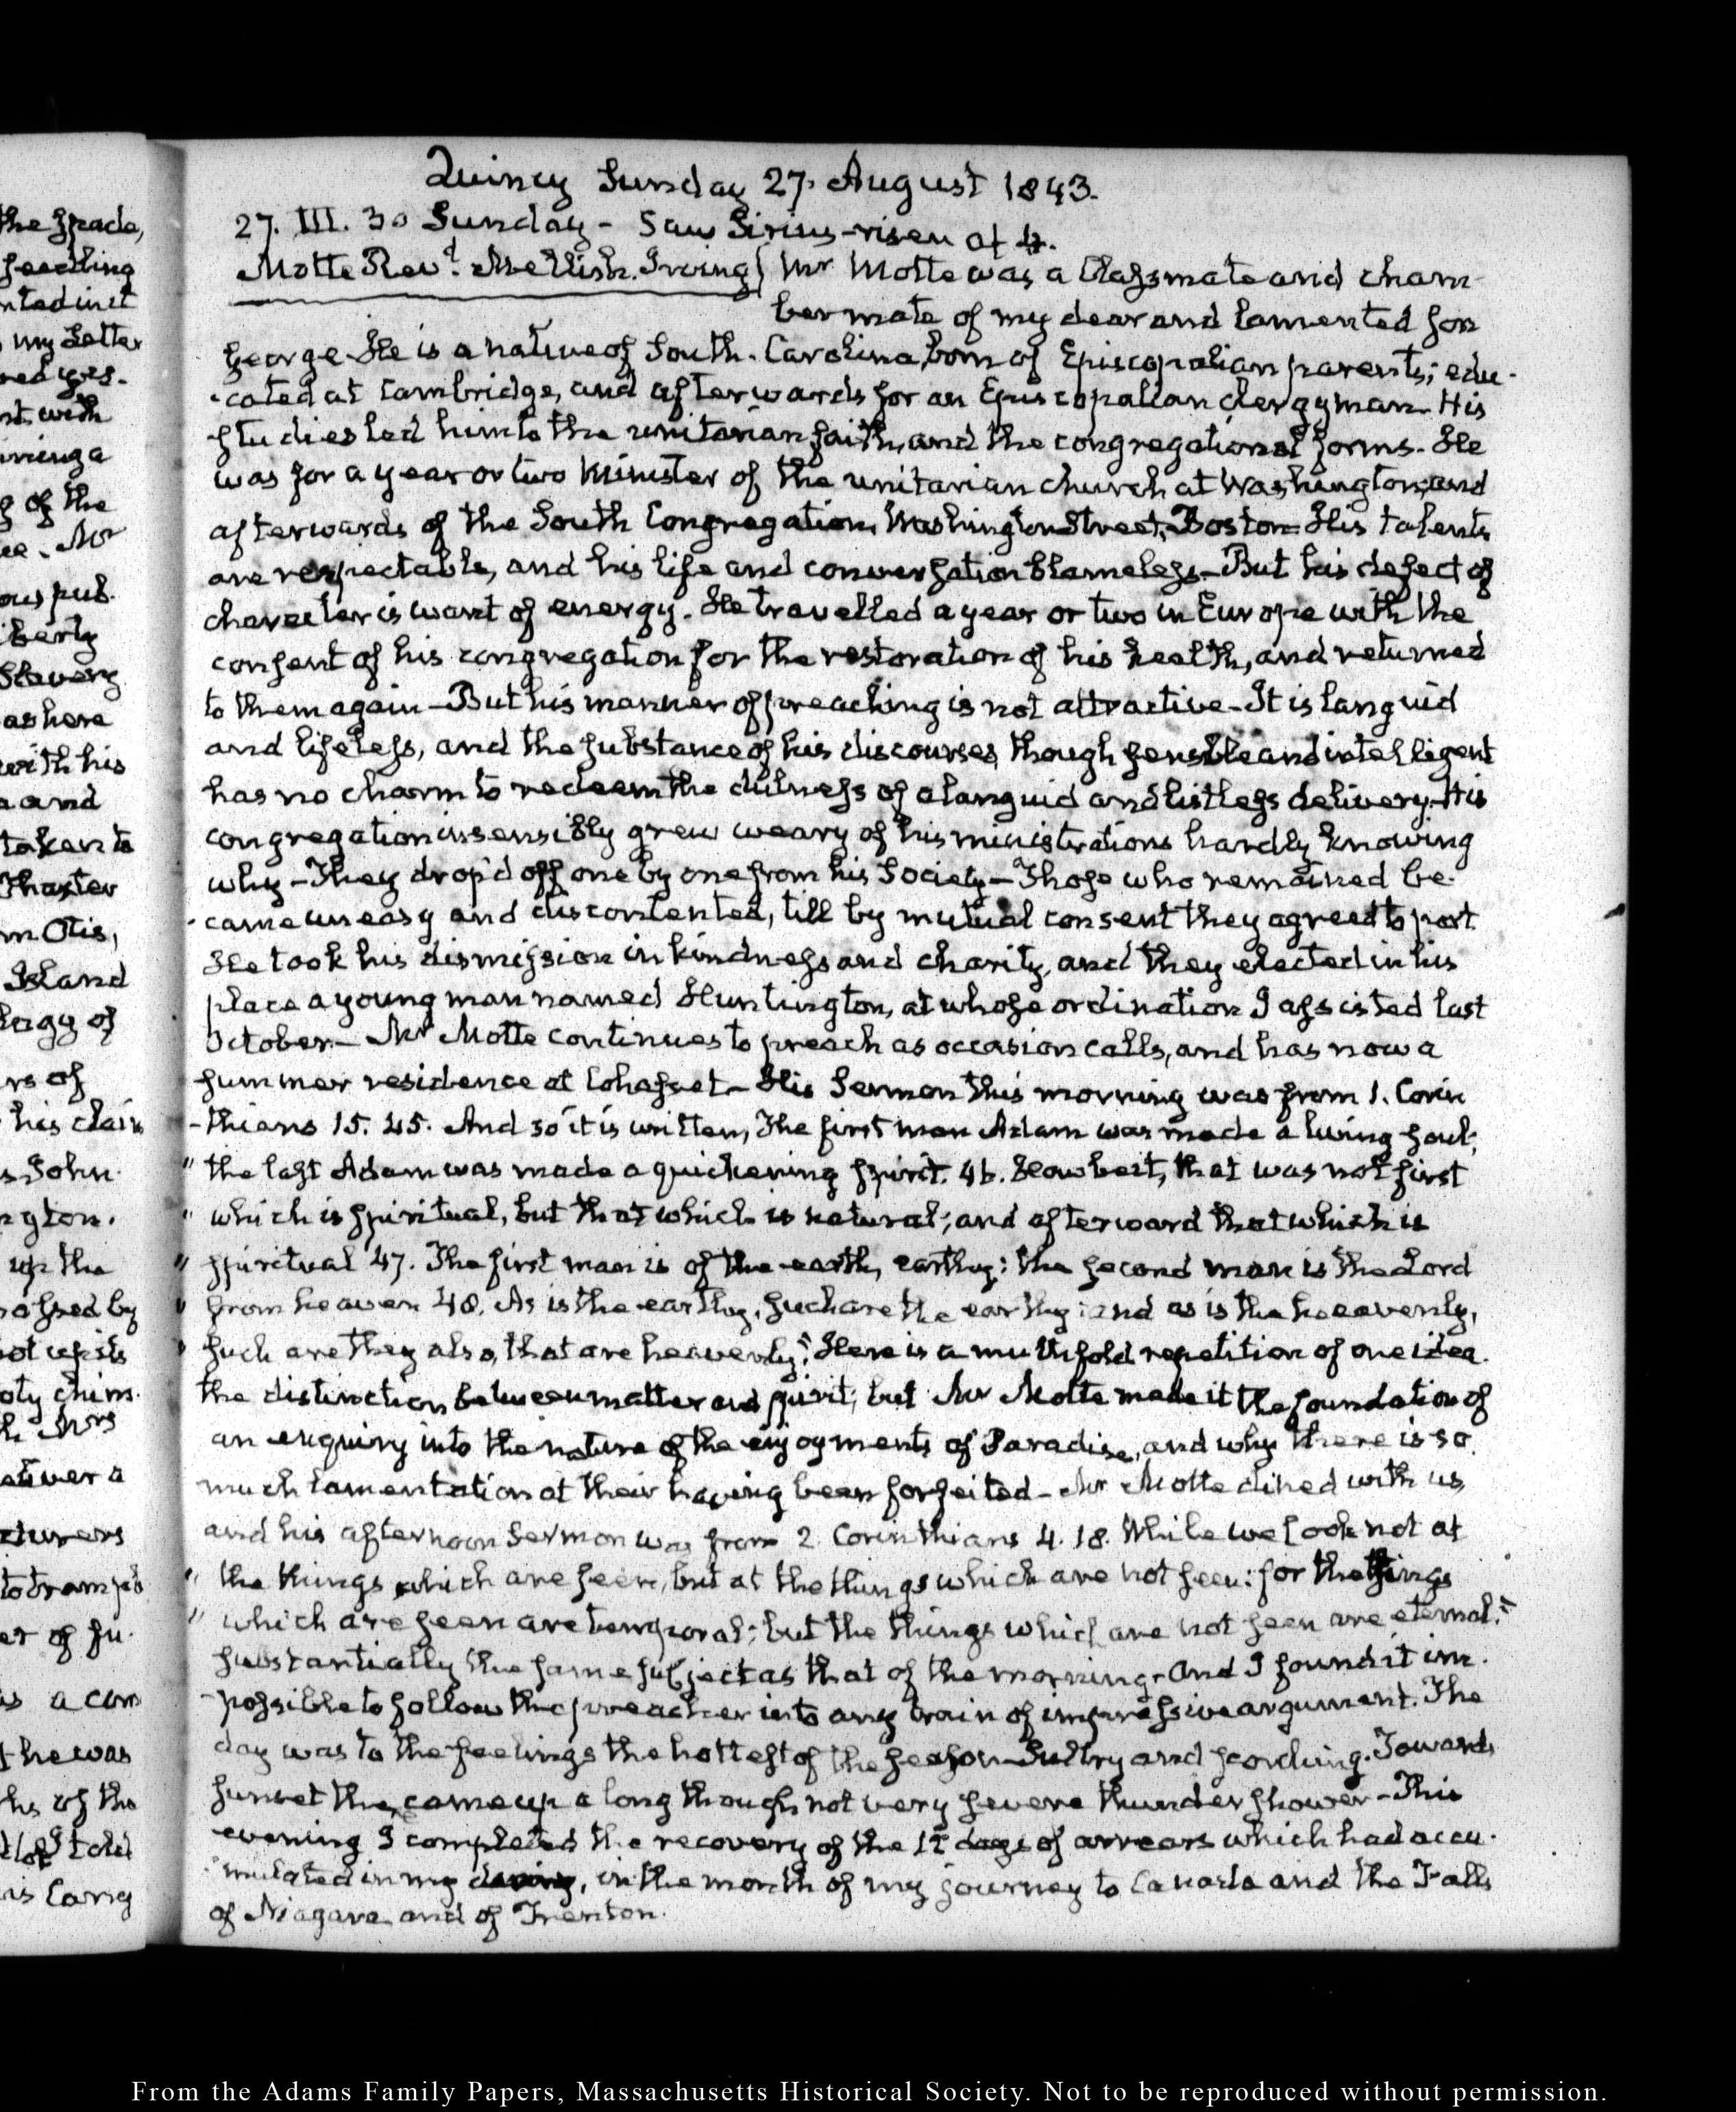 Quincy Sunday 27. August 1843.
27. III. 30 Sunday - Saw Sirius - risen at 4.
Motte Revd. Mellish. Irving} Mr Motte was a Classmate and cham-
bermate of my dear and lamented son
George He is a native of South-Carolina, born of Episcopalian parents; edu-
-cated at Cambridge, and afterwards for an Episcopalian clergyman. His
studies led him to the unitarian faith, and the congregational forms. He
was for a year or two Minister of the unitarian church at Washington, and
afterwards of the South Congregation, Washington Street, Boston - His talents
are respectable, and his life and conversation blameless - But his defect of
character is want of energy. He travelled a year or two in Europe with the
consent of his congregation for the restoration of his health, and returned
to them again - But his manner of preaching is not attractive - It is languid
and lifeless, and the substance of his discourses though sensible and intelligent
has no charm to redeem the dulness of a languid and listless delivery. His
congregation insensibly grew weary of his ministrations hardly knowing
why - They drop'd off one by one from his Society - Those who remained be-
-came uneasy and discontented, till by mutual consent they agreed to part
He took his dismission in kindness and charity, and they elected in his
place a young man named Huntington, at whose ordination I assisted last
October - Mr Motte continues to preach as occasion calls, and has now a
summer residence at Cohasset - His Sermon this morning was from 1. Corin
-thians 15. 45. And so it is written, The first man Adam was made a living soul;
" the last Adam was made a quickening spirit. 46. Howbeit, that was not first
" which is spiritual, but that which is natural; and afterward that which is
" spiritual 47. The first man is of the earth, earthy: the second man is the Lord
" from heaven 48. As is the earthy, such are the earthy: and as is the heavenly,
" such are they also, that are heavenly." Here is a multifold repetition of one idea.
the distinction between matter and spirit; but Mr Motte made it the foundation of
an enquiry into the nature of the enjoyments of Paradise, and why there is so
much lamentation at their having been forfeited - Mr Motte dined with us
and his afternoon Sermon was from 2. Corinthians 4. 18. While we look not at
" the things which are seen, but at the things which are not seen: for the things
" which are seen are temporal; but the things which are not seen are eternal."
substantially the same subject as that of the morning - And I found it im-
-possible to follow the preacher into any train of impressive argument. The
day was to the feelings the hottest of the season - Sultry and scorching. Towards
sunset there came up a long though not very severe thunder shower - This
evening I completed the recovery of the 12 days of arrears which had accu-
-mulated in my , in the month of my journey to Canada and the Falls
of Niagara and of Trenton.
the spade,
nted in it
my Letter
nt with
g of the
Mr
ous pub-
iberty
Slavery
as here
with his
a and
taken to
Thaxter
m Otis,
Island
rs of
his clai
s John
ngton.
up the
Mrs
to tramp
er of su-
is a com
t he was
ths of the